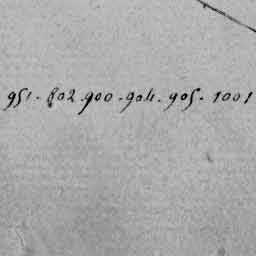 951 - 802 . 900 - 904 . 905 - 1001